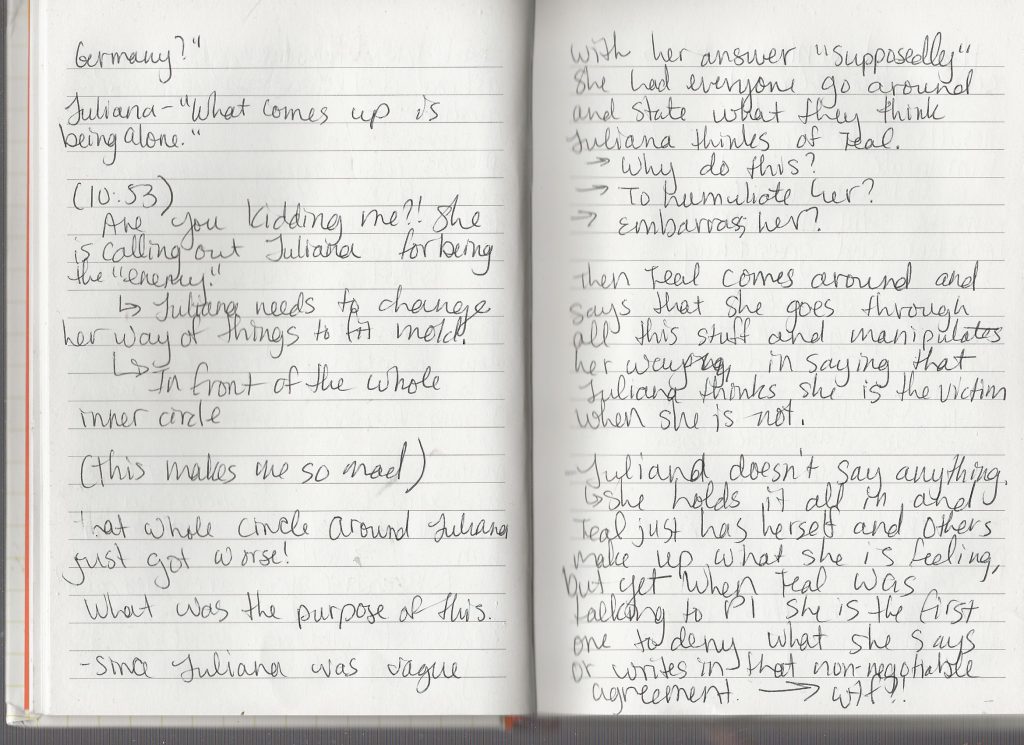 Germany?"
Juliana - "What comes up is
being alone."
(10:53)
Are you kidding me?! She
is calling out Juliana for being
the "enemy."
↳ Juliana needs to change
her way of things to fit mold.
↳ In front of the whole
inner circle
(this makes me so mad)
That whole circle around Juliana
just got worse!
What was the purpose of this.
- since Juliana was vague
with her answer "supposedly"
She had everyone go around
and state what they think
Juliana thinks of Teal.
→ Why do this?
→ To humuliate her?
→ Embarrass her?
Then Teal comes around and
says that she goes through
all this stuff and manipulates
her way in saying that
Juliana thinks she is the victim
when she is not.
- Juliana doesn't say anything.
↳ She holds it all in and
Teal just has herself and others
make up what she is feeling,
but yet when Teal was
talking to PI she is the first
one to deny what she says
or writes in that non-negotiable
agreement. → wtf?!